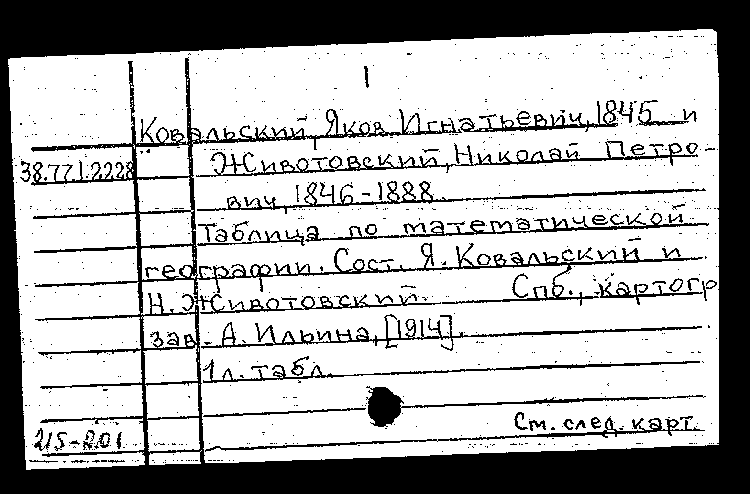 I
Ковальский, Яков Игнатьевич, 1845 и
38.77.1.2228 Животовский, Николай Петро-
вич, 1846-1888
Таблица по математической
географии. Сост. Я. Ковальский и
Н. Животовский. Спб., картогр
зав. А. Ильина, [1914].
1 л. табл.
См. след. карт.
215-201